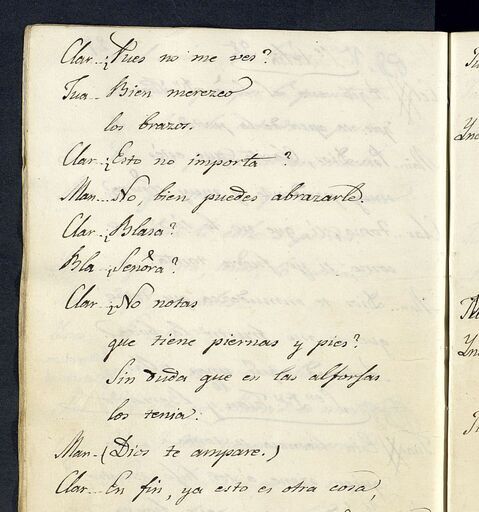 Clar... ¿Pues no me ves?
Jua... Bien merezco
los brazos.
Clar... ¿Esto no importa?
Man... No, bien puedes abrazarte.
Clar... ¿Blasa?
Bla... ¿Señora?
Clar... ¿No notas
que tiene piernas y pies?
Sin duda que en las alforjas
los tenia.
Man... (Dios te ampare.)
Clar... En fin, ya esto es otra cosa,